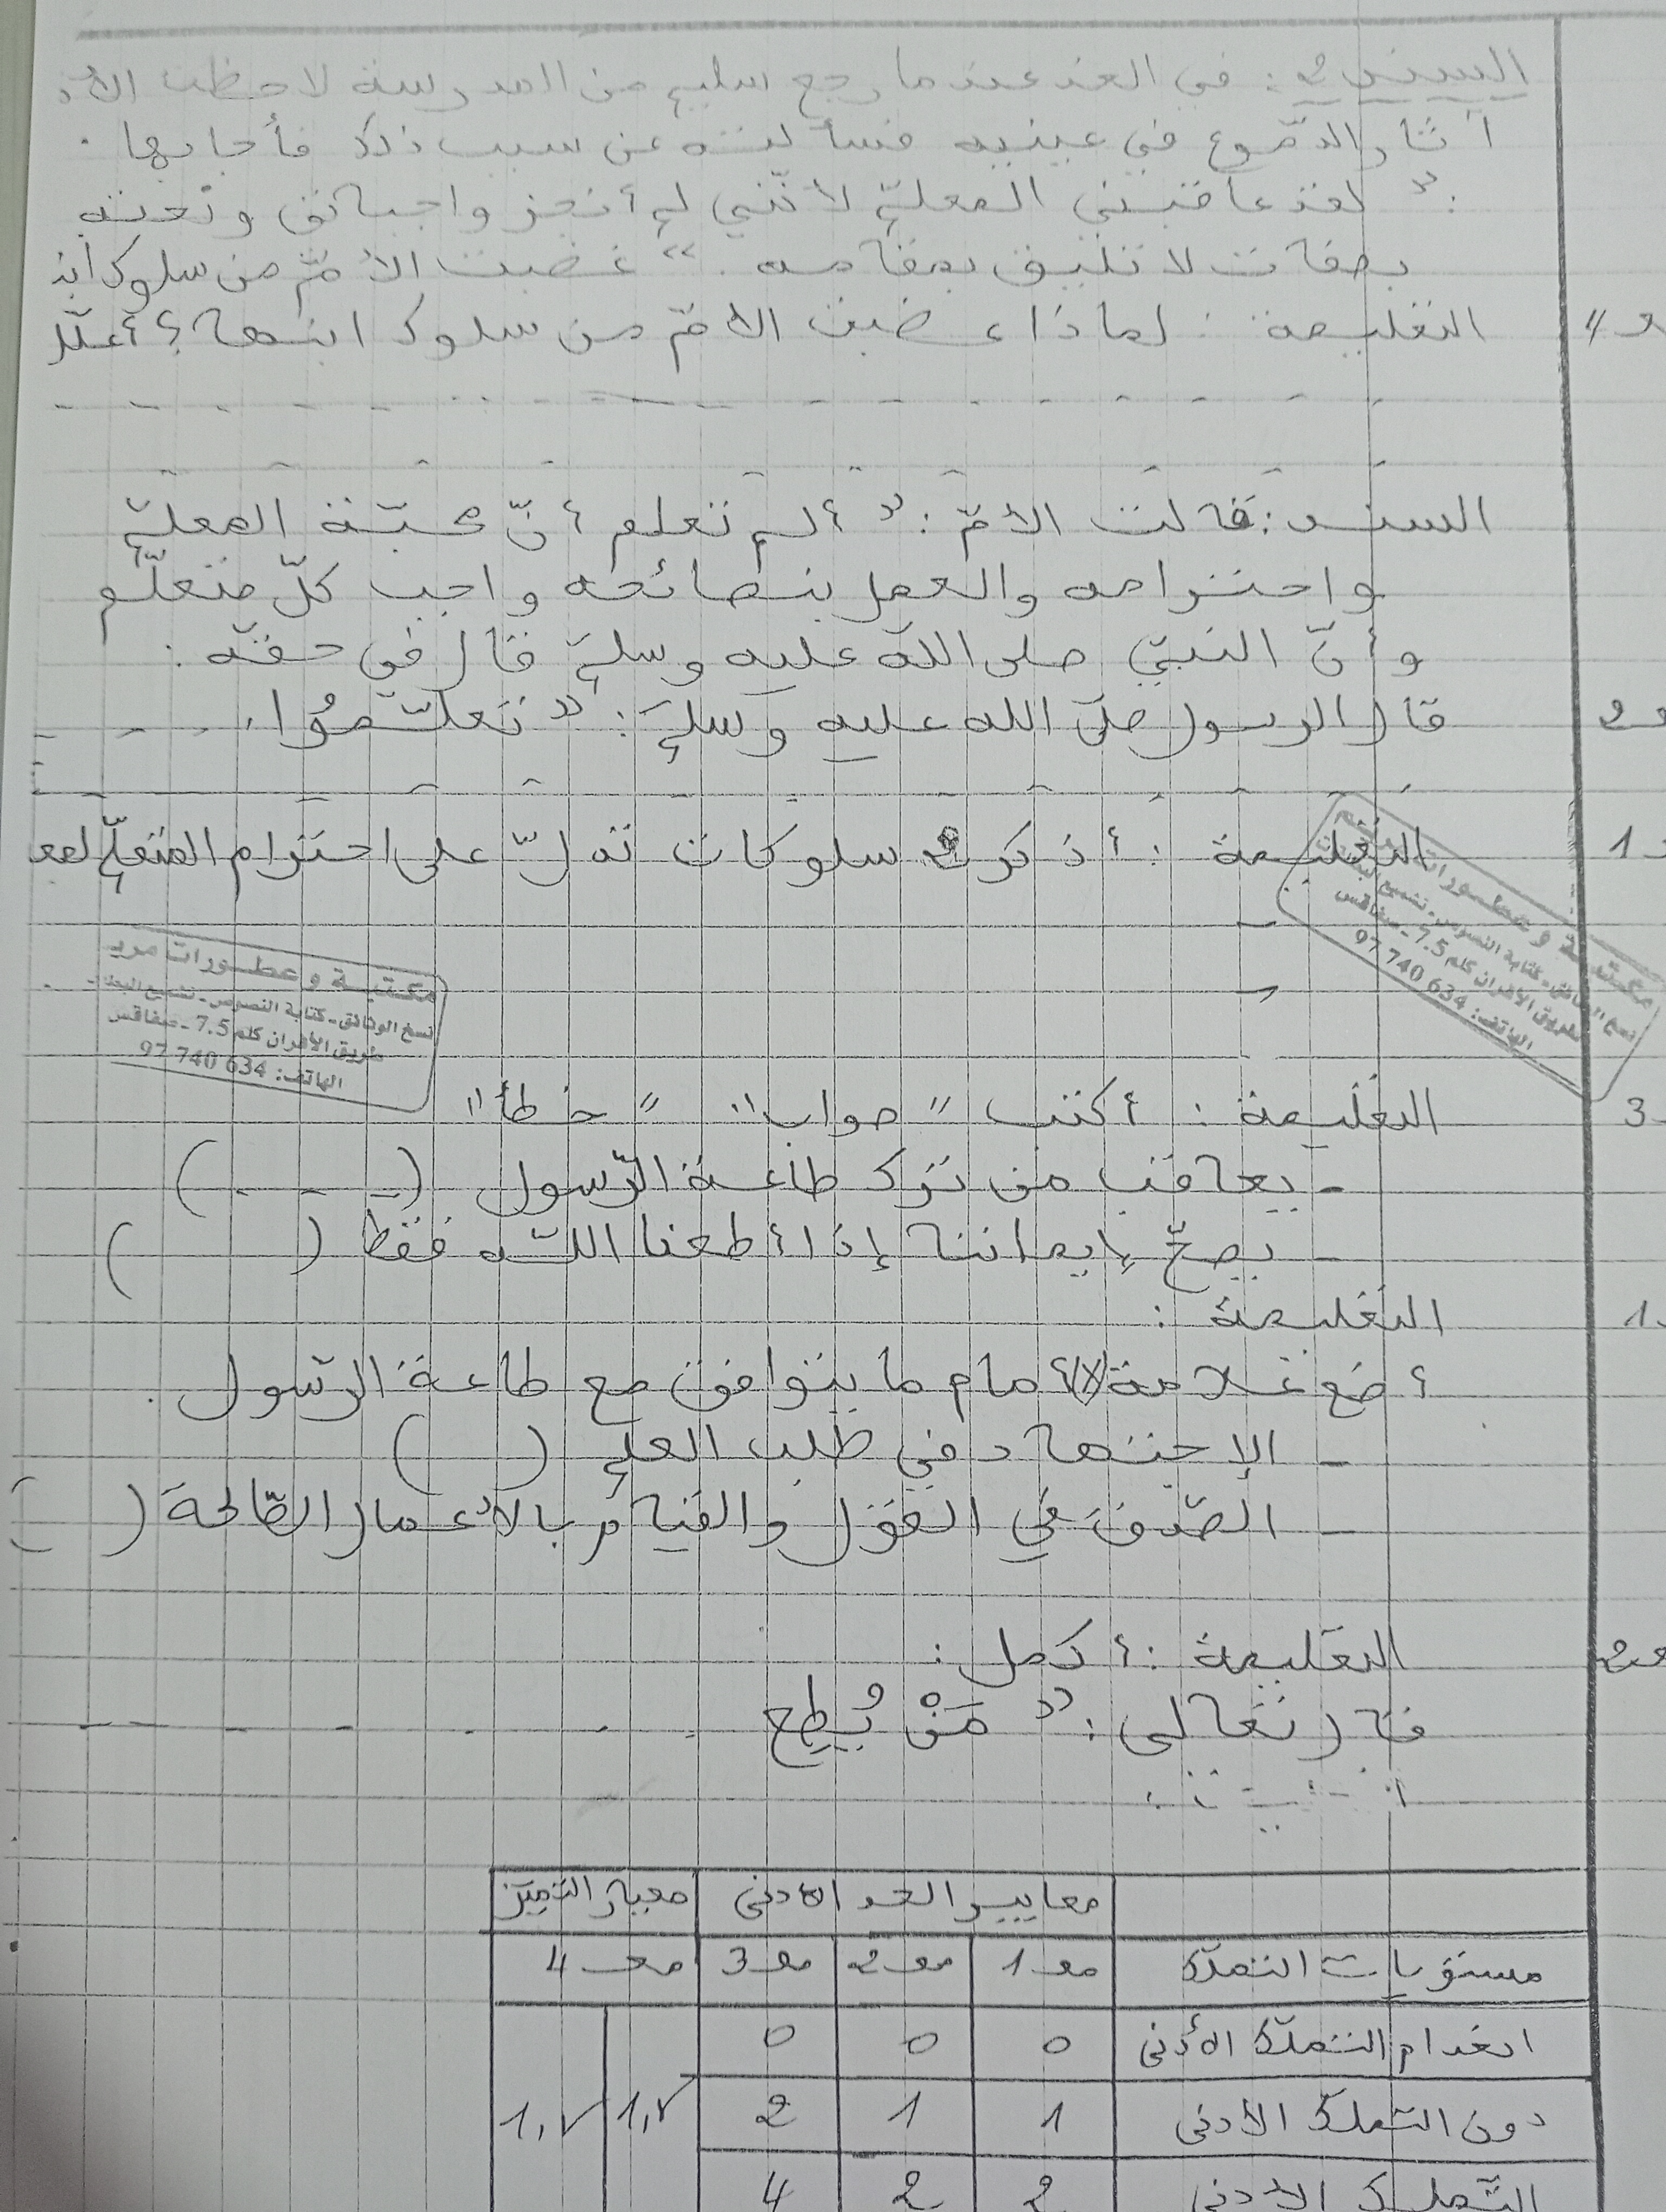 السند 2: في الغد عندما رجع سليم من المدرسة لاحظت الأم
آثار الدّموع في عينيه فسألته عن سبب ذلك فأجابها.
:" لقد عاقبني المعلّم لأنّني لم أنجز واجباتي ونعته
بصفات لا تليق بمقامه." غضبت الأمّ من سلوك ابنـ
مع 4 التعليمة: لماذا غضبت الأمّ من سلوك ابنها؟ أعلّل
السند: قالت الأمّ:" ألم تعلم أنّ محبّة المعلّم
واحترامه والعمل بنصائحه واجب كلّ متعلّم
وأنّ النبيّ صلى اللّه عليه وسلّم قال في حقّه:
مع 2 قال الرسول صلّى الله عليه وَسلّمَ:" تَعلَّمُوا
مع 1 التعليمة: أذكر 2 سلوكات تدلّ على احترام المتعلّم لمعـ
مكتبة و عطورات
نسخ الوثائق - كتابة النصوص - تشميع
طريق الأفران كلم 7.5 - صفاقس
الهاتف: 634 740 97
مكتبة و عطورات
نسخ الوثائق - كتابة النصوص - تشميع
طريق الأفران كلم 7.5 - صفاقس
الهاتف: 634 740 97
مع 3 التعليمة: أكتب "صواب" "خطأ"
- يعاقب من ترك طاعة الرّسول ( - - - )
- يصحّ إيماننا إذا أطعنا اللّه فقط ( )
مع 1 التعليمة:
أضع علامة (x) أمام ما يتوافق مع طاعة الرّسول.
- الإجتهاد في طلب العلم ( )
- الصّدق في القول والقيام بالأعمال الصّالحة ( )
مع 2 التعليمة: أكمل:
قال تعالى:" مَنْ يُطِع
معايير الحد الأدنى معيار التميّز
مستويات التملّك مع 1 مع 2 مع 3 مع 4
انعدام التملّك الأدنى 0 0 0
دون التملّك الأدنى 1 1 2
التّملّك الأدنى 2 2 4